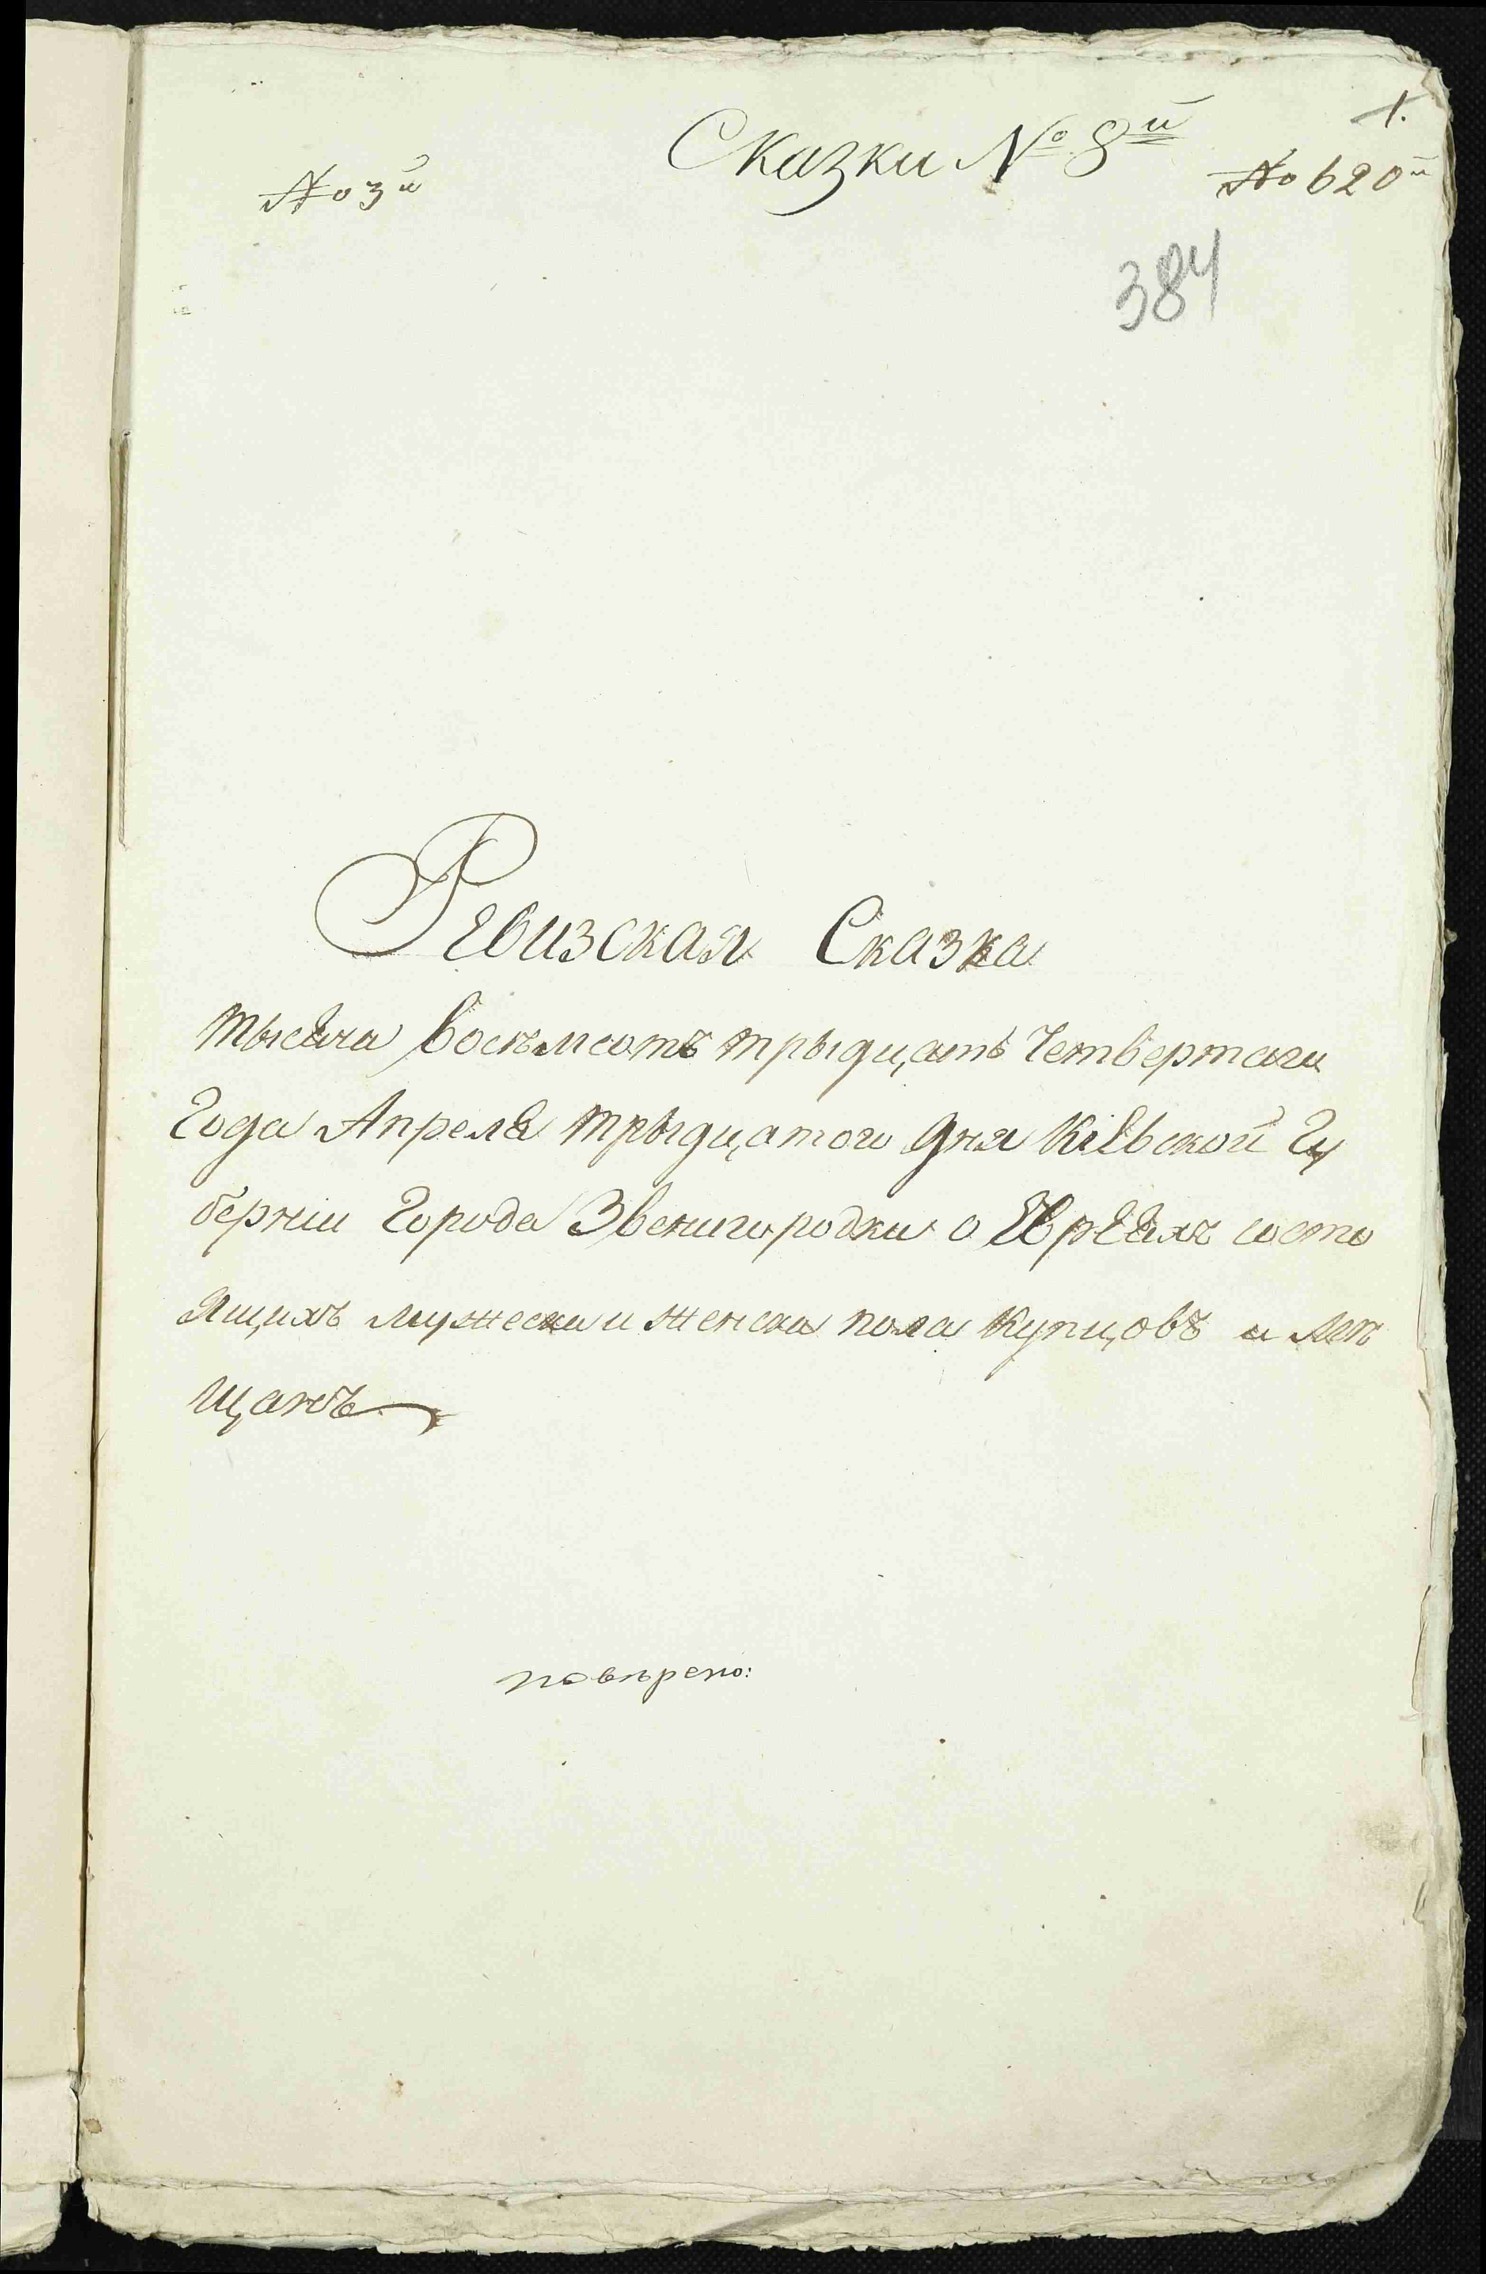 1.
Сказки № 8й
№ 3й
№ 620й
384
Ревизская Сказка
тысяча восемьсотъ трыдцать Четвертаго
Года Апреля трыдцатого дня Кіевской Гу
берніи Города Звенигородки о Евреяхъ состо
ящихъ мужеска и женска пола купцовъ и мѣ
щанъ
повѣрено: